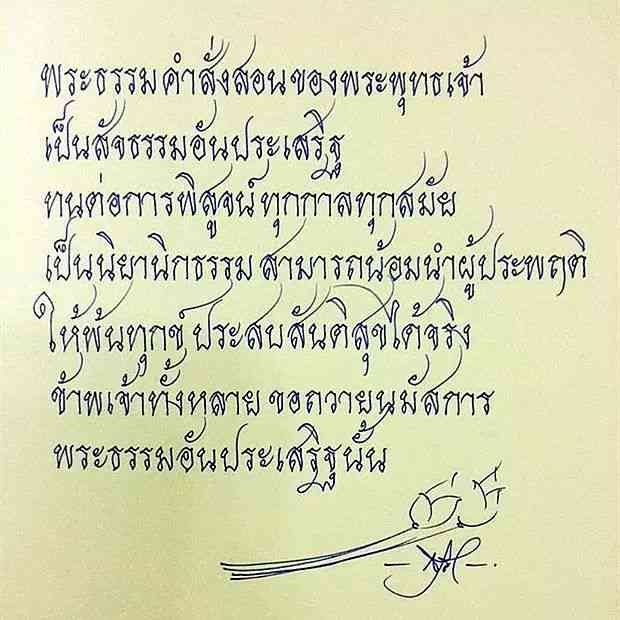 พระธรรมคำสั่งสอนของพระพุทธเจ้า
เป็นสัจธรรมอันประเสริฐ
ทนต่อการพิสูจน์ ทุกกาลทุกสมัย
เป็นนิยานิกธรรม สามารถน้อมนำผู้ประพฤติ
ให้พ้นทุกข์ ประสบสันติสุขได้จริง
ข้าพเจ้าทั้งหลาย ขอถวายนมัสการ
พระธรรมอันประเสริฐนั้น